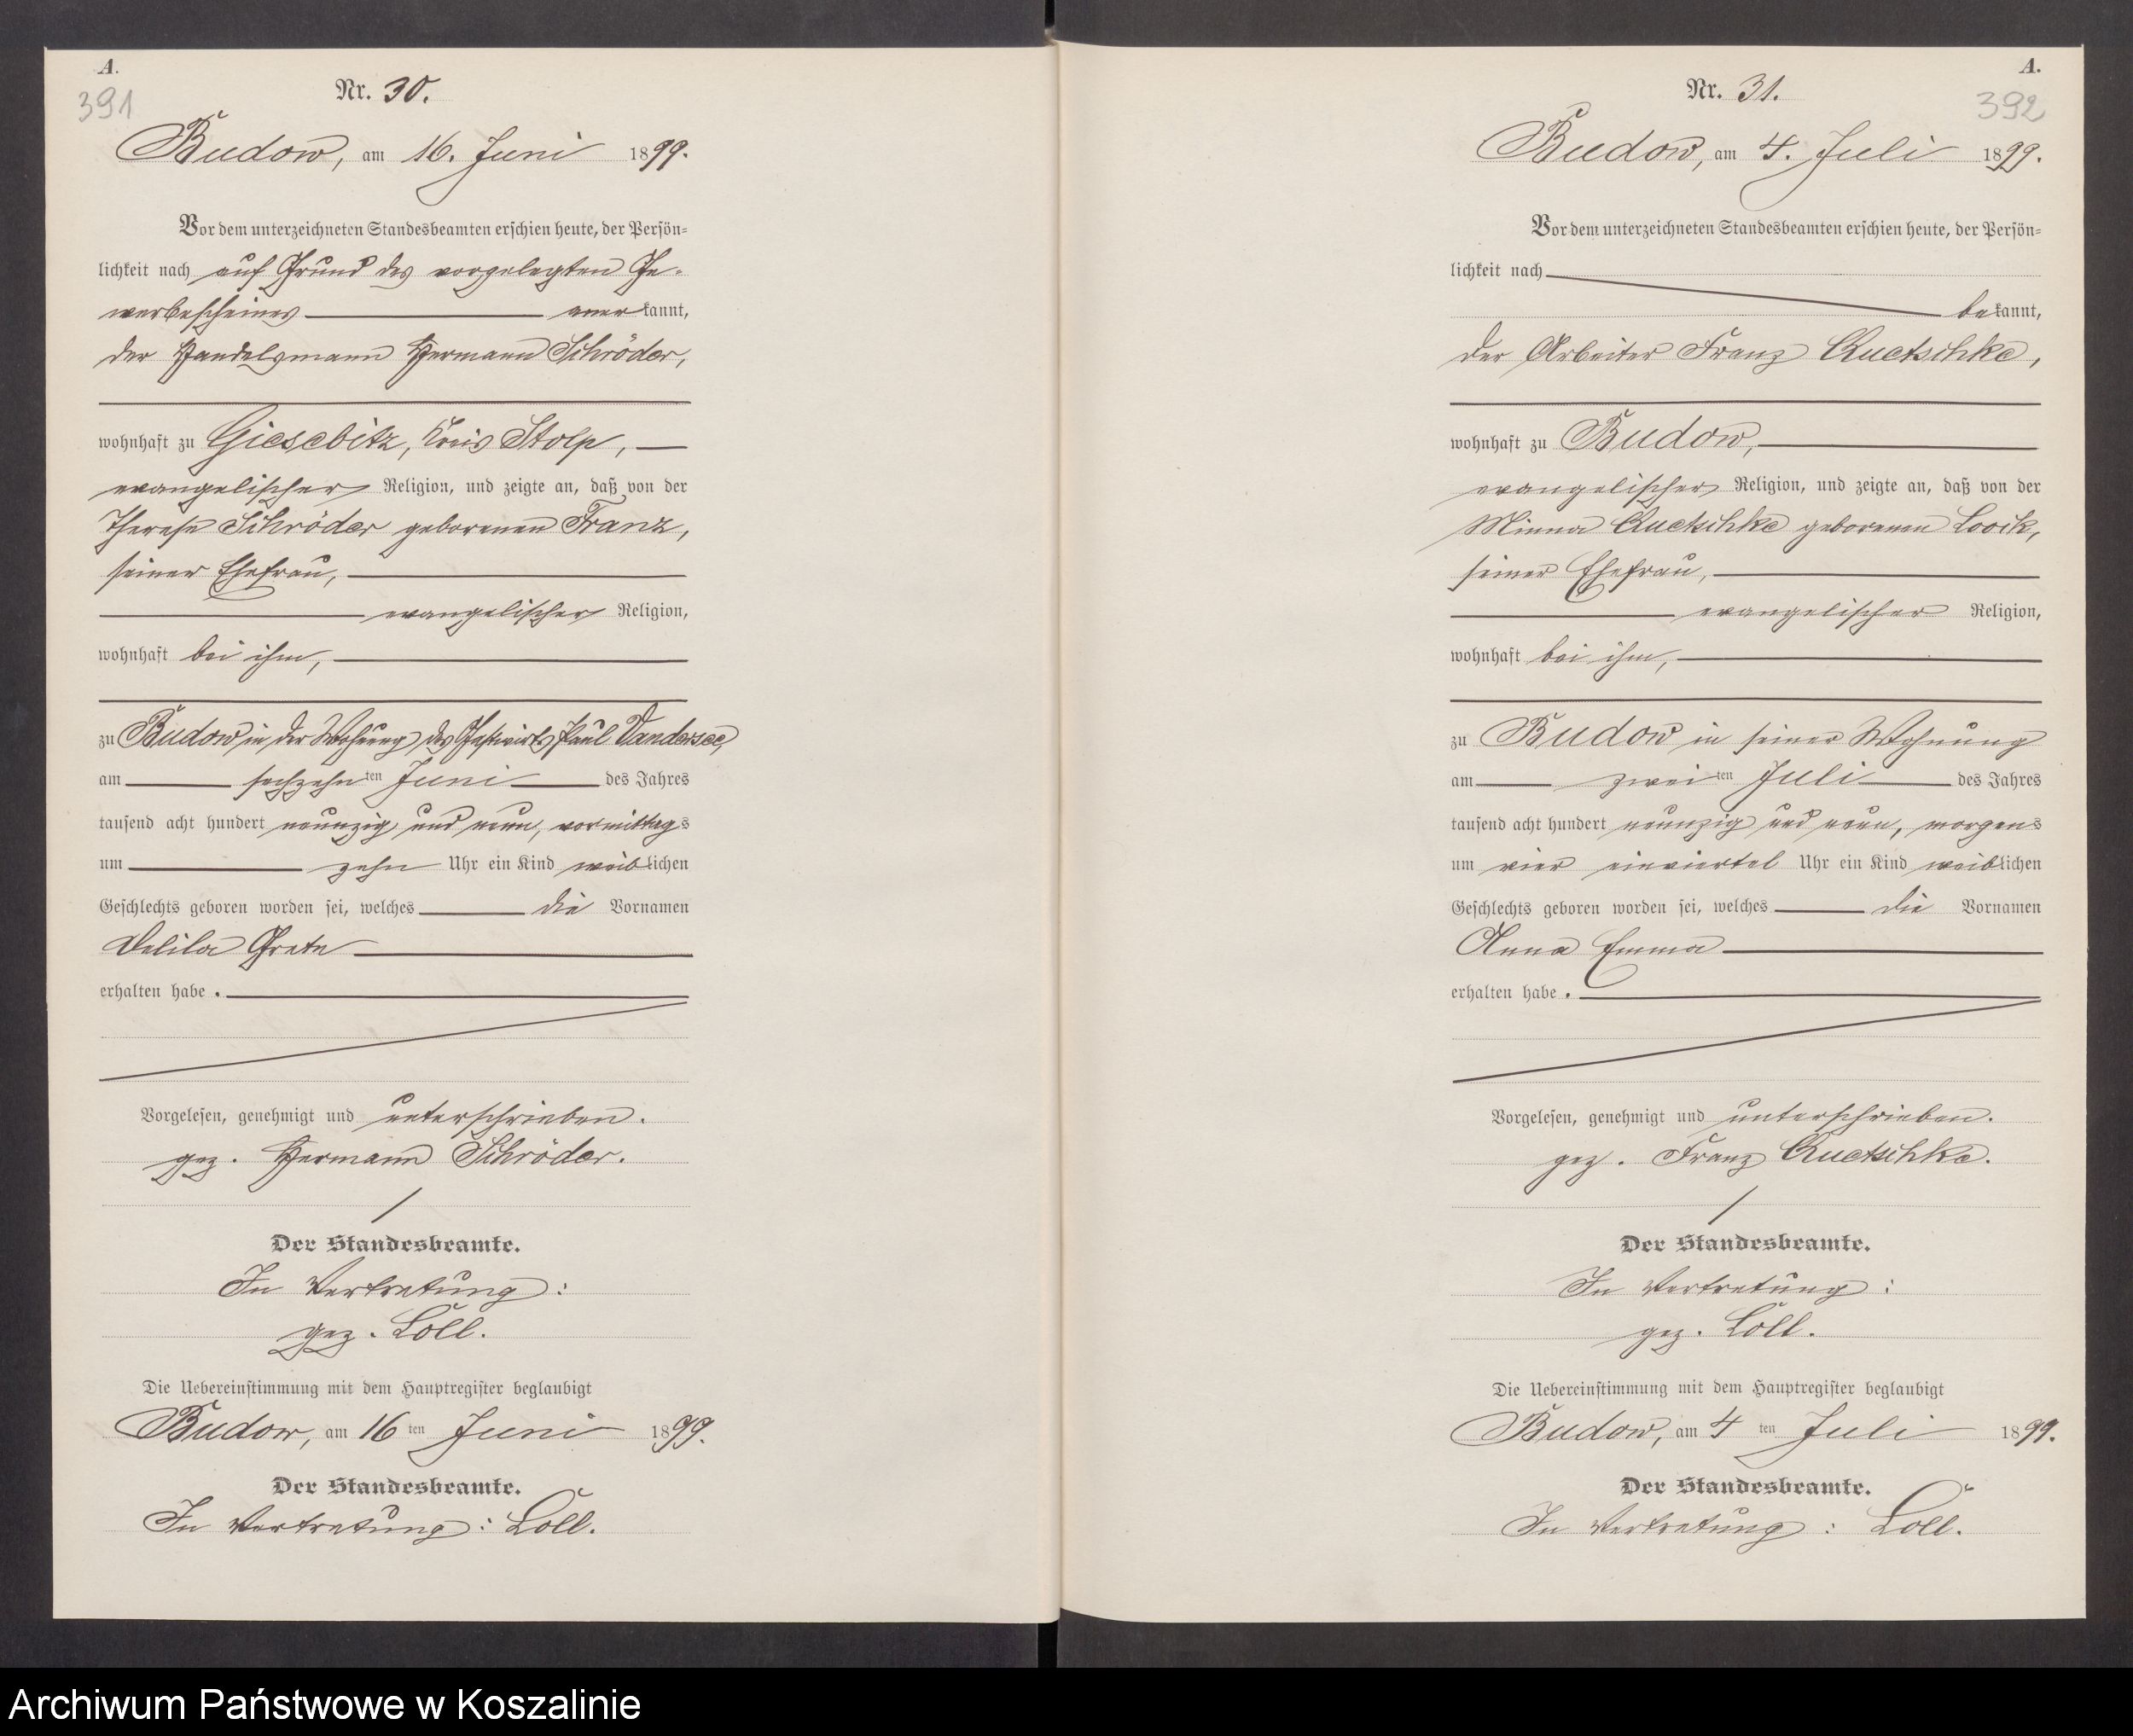 A.
391
Nr. 30.
Budow, am 16. Juni 1899.
Vor dem unterzeichneten Standesbeamten erschien heute, der Persön-
lichkeit nach auf Grund des vorgelegten Ge-
werbescheines anerkannt,
der Handelsmann Hermann Schröder,
wohnhaft zu Giesebitz, Kreis Stolp,
evangelischer Religion, und zeigte an, daß von der
Therese Schröder geborenen Franz,
seiner Ehefrau,
evangelischer Religion,
wohnhaft bei ihm,
zu Budow in der Wohnung des Gastwirts Paul Vandersee,
am sechzehnten Juni des Jahres
tausend acht hundert neunzig und neun, vormittags
um zehn Uhr ein Kind weiblichen
Geschlechts geboren worden sei, welches die Vornamen
Delila Grete
erhalten habe.
Vorgelesen, genehmigt und unterschrieben.
gez. Hermann Schröder.
Der Standesbeamte.
In Vertretung:
gez. Löll.
Die Uebereinstimmung mit dem Hauptregister beglaubigt
Budow, am 16ten Juni 1899.
Der Standesbeamte.
In Vertretung: Löll.
A.
392
Nr. 31.
Budow, am 4. Juli 1899.
Vor dem unterzeichneten Standesbeamten erschien heute, der Persön-
lichkeit nach
bekannt,
der Arbeiter Franz Quetschke,
wohnhaft zu Budow,
evangelischer Religion, und zeigte an, daß von der
Minna Quetschke geborenen Looik,
seiner Ehefrau,
evangelischer Religion,
wohnhaft bei ihm,
zu Budow in seiner Wohnung
am zweiten Juli des Jahres
tausend acht hundert neunzig und neun, morgens
um vier einviertel Uhr ein Kind weiblichen
Geschlechts geboren worden sei, welches die Vornamen
Anna Emma
erhalten habe.
Vorgelesen, genehmigt und unterschrieben.
gez. Franz Quetschke.
Der Standesbeamte.
In Vertretung:
gez. Löll.
Die Uebereinstimmung mit dem Hauptregister beglaubigt
Budow, am 4ten Juli 1899.
Der Standesbeamte.
In Vertretung: Löll.
Archiwum Państwowe w Koszalinie